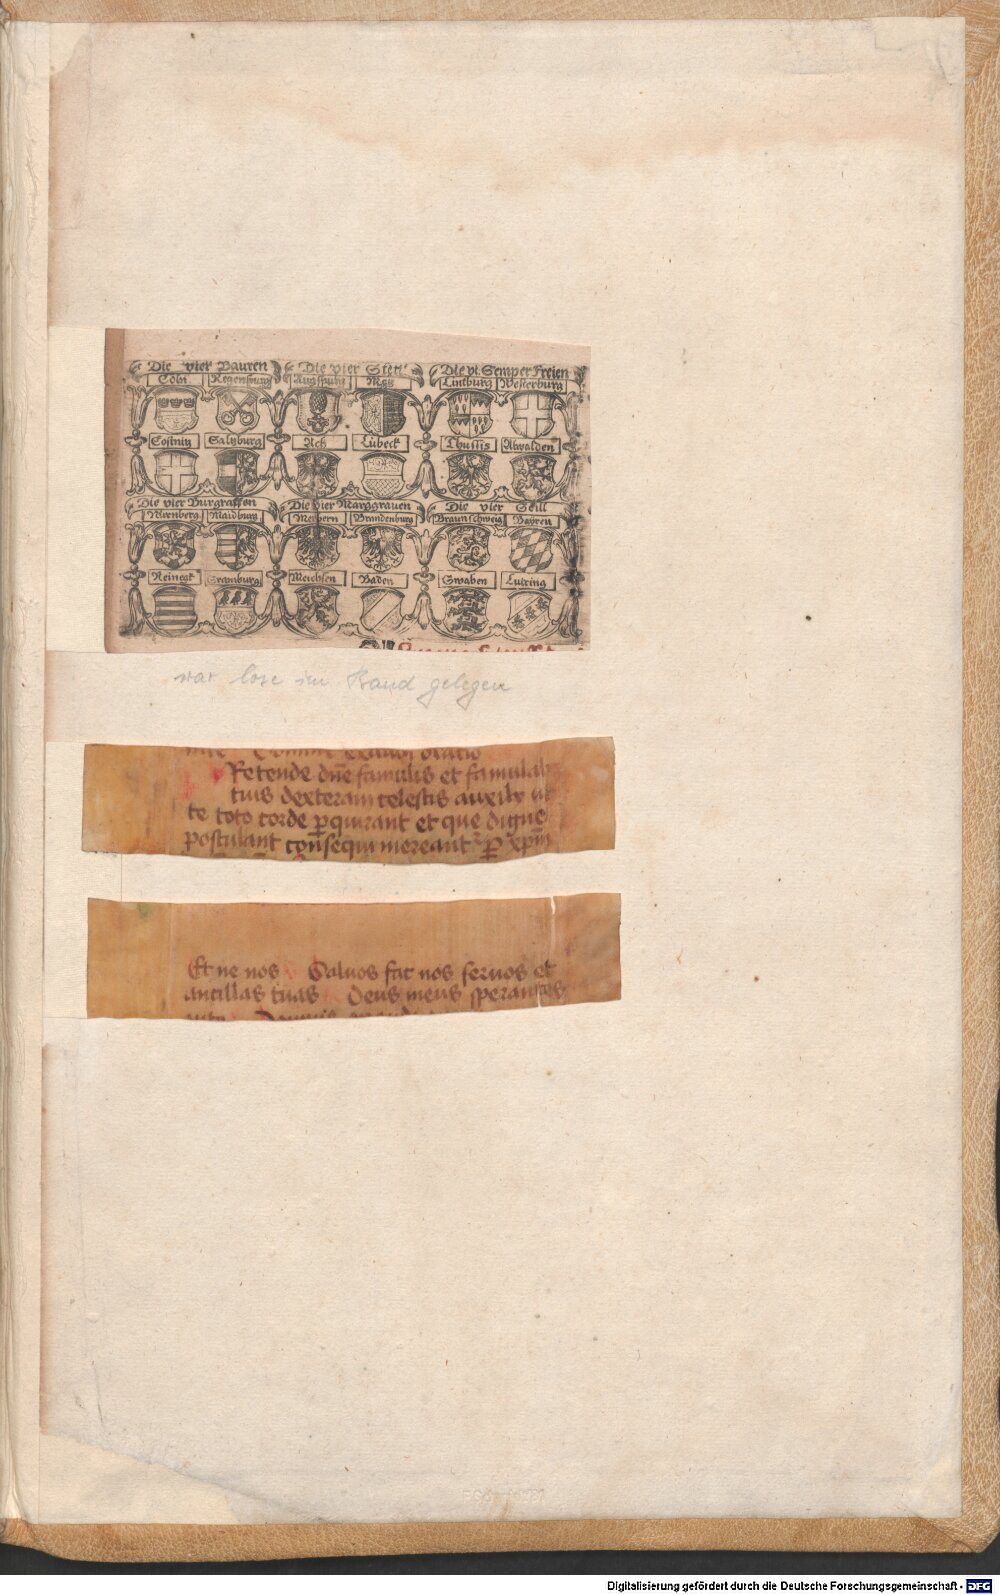 Die vier Bauren Die vier Stett Die vi. Semper Freien
Cöln Regenspurg Augspurg Metz Limburg Westerburg
Costnitz Saltzburg Ach Lübeck Thussis Alwalden
Die vier Burgraffen Die vier Marggrauen Die vier Seill
Nürnberg Maidburg Merhern Brandenburg Braunschweig Bayren
Reineck Stramburg Meichsen Baden Swaben Lutring
war lose im Band gelegen
Domine exaudi oratio
Pretende dñe famulis et famulab
tuis dexteram celestis auxily ut
te toto corde pquirant et que digne
postulant consequi mereant P xpm
Et ne nos Saluos fac nos seruos et
ancillas tuas Deus meus sperantes
Digitalisierung gefördert durch die Deutsche Forschungsgemeinschaft - DFG